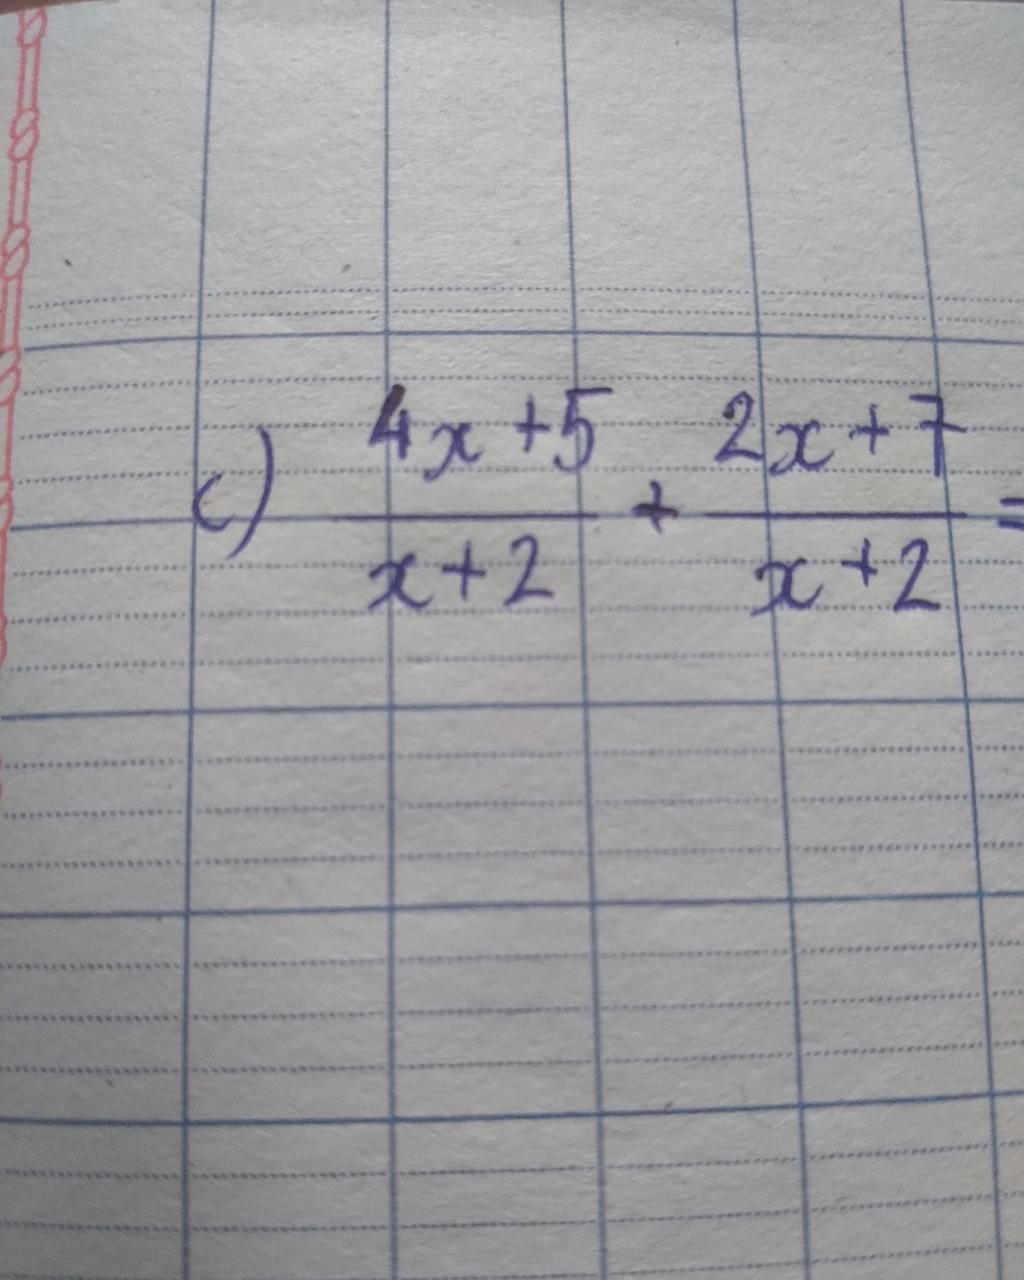 c) \frac{4x+5}{x+2} + \frac{2x+7}{x+2} =